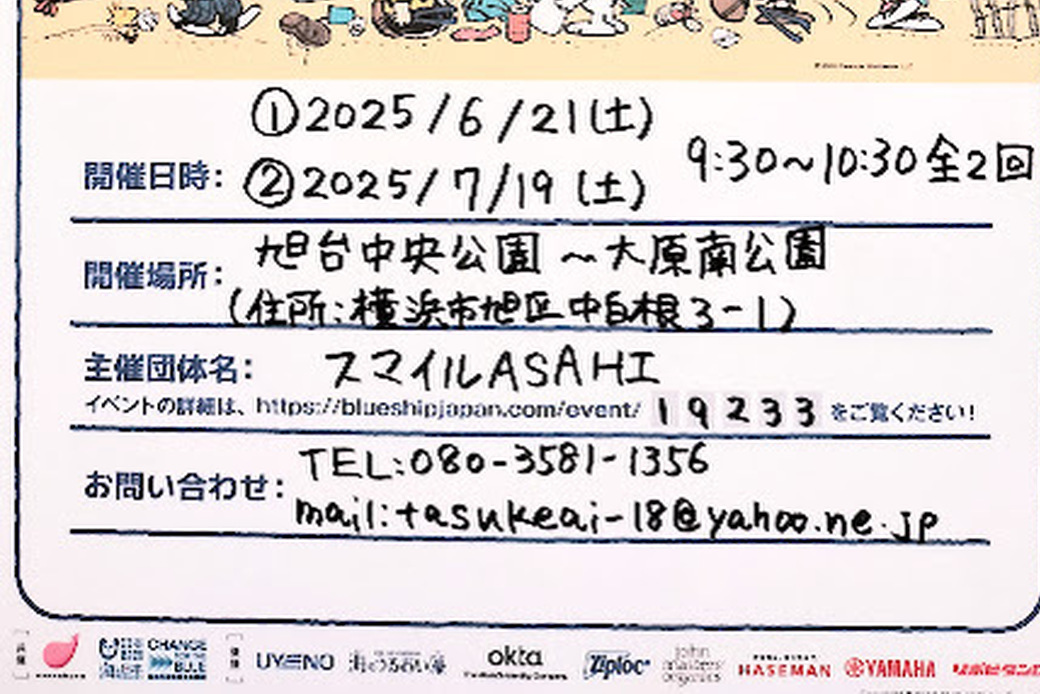 ①2025/6/21(土)
9:30~10:30全2回
開催日時:
②2025/7/19(土)
旭台中央公園 ~大原南公園
開催場所:
(住所:横浜市旭区中白根3-1)
主催団体名: スマイルASAHI
イベントの詳細は、https://blueshipjapan.com/event/ 19233 をご覧ください!
お問い合わせ: TEL:080-3581-1356
mail:tasukeai-18@yahoo.ne.jp
CHANGE FOR THE BLUE UYENO 海とうるおい夢 okta Ziploc john masters organics HASEMAN YAMAHA リポビタンD